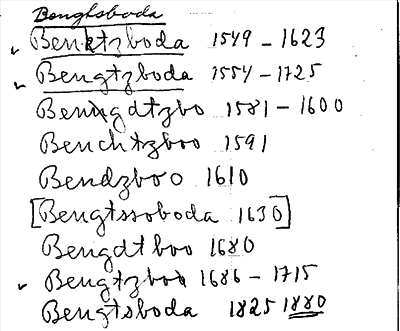 Bengtsboda
Benktzboda 1549 – 1623
Bengtzboda 1554 – 1725
Benngdtzbo 1581 – 1600
Benchtzboo 1591
Bendzboo 1610
[Bengtssoboda 1630]
Bengdtboo 1680
Bengtzboo 1686 – 1715
Bengtsboda 1825 1880